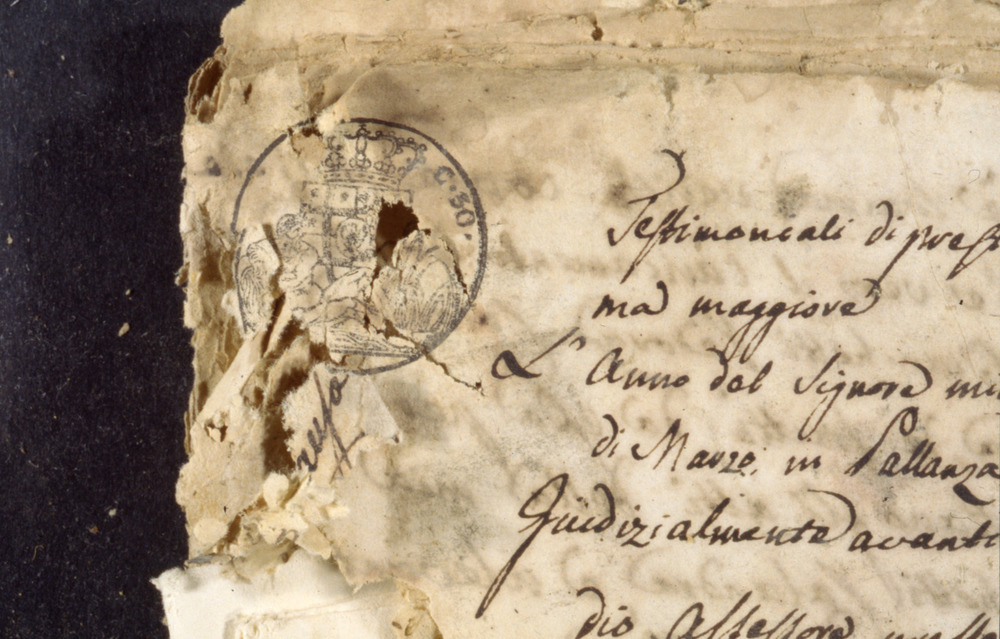 C. 50.
Testimoneali di pres
ma maggiore
L' Anno del Signore mi
di Marzo, in Pallanza
Giudizialmente avanti
dio Assessore